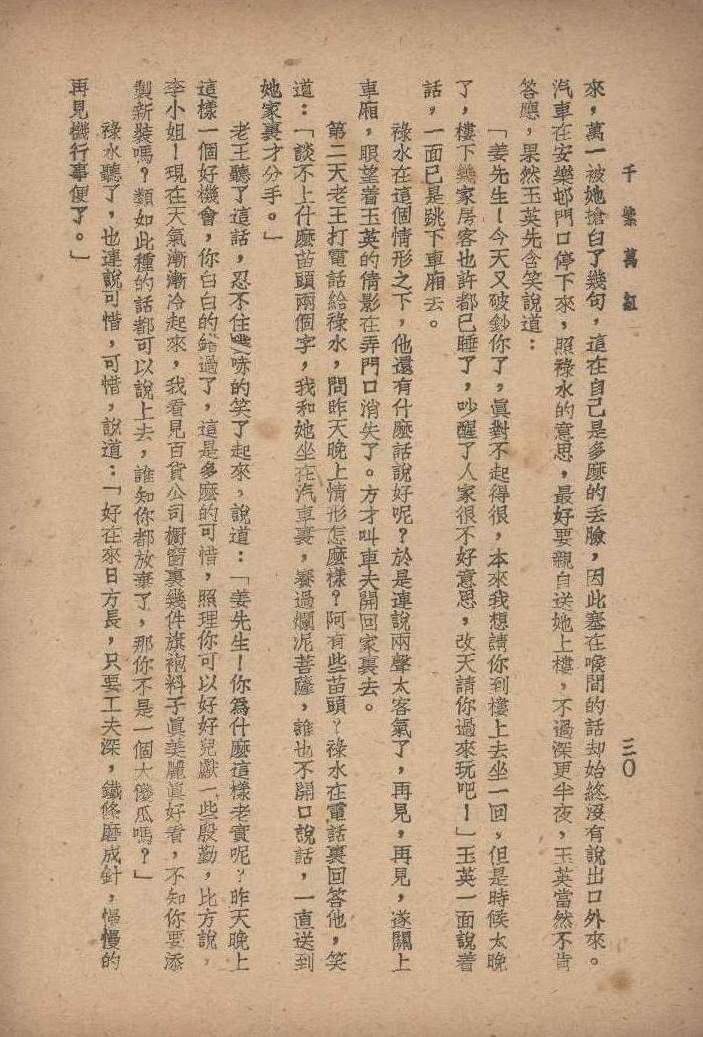 千紫萬紅
三〇
來，萬一被她搶白了幾句，這在自己是多麼的丢臉，因此塞在喉間的話却始終沒有說出口外來。
汽車在安樂邨門口停下來，照祿水的意思，最好要親自送她上樓，不過深更半夜，玉英當然不肯
答應，果然玉英先含笑說道：
「姜先生！今天又破鈔你了，眞對不起得很，本來我想請你到樓上去坐一回，但是時候太晚
了，樓下幾家房客也許都已睡了，吵醒了人家很不好意思，改天請你過來玩吧！」玉英一面說着
話，一面已是跳下車廂去。
祿水在這個情形之下，他還有什麼話說好呢？於是連說兩聲太客氣了，再見，再見，遂關上
車廂，眼望着玉英的倩影在弄門口消失了。方才叫車夫開回家裏去。
第二天老王打電話給祿水，問昨天晚上情形怎麼樣？阿有些苗頭？祿水在電話裏回答他，笑
道：「談不上什麼苗頭兩個字，我和她坐在汽車裏，賽過爛泥菩薩，誰也不開口說話，一直送到
她家裏才分手。」
老王聽了這話，忍不住噗哧的笑了起來，說道：「姜先生！你爲什麼這樣老實呢？昨天晚上
這樣一個好機會，你白白的錯過了，這是多麼的可惜，照理你可以好好兒獻一些殷勤，比方說，
李小姐！現在天氣漸漸冷起來，我看見百貨公司櫥窗裏幾件旗袍料子眞美麗眞好看，不知你要添
製新裝嗎？類如此種的話都可以說上去，誰知你都放棄了，那你不是一個大傻瓜嗎？」
祿水聽了，也連說可惜，可惜，說道：「好在來日方長，只要工夫深，鐵條磨成針，慢慢的
再見機行事便了。」